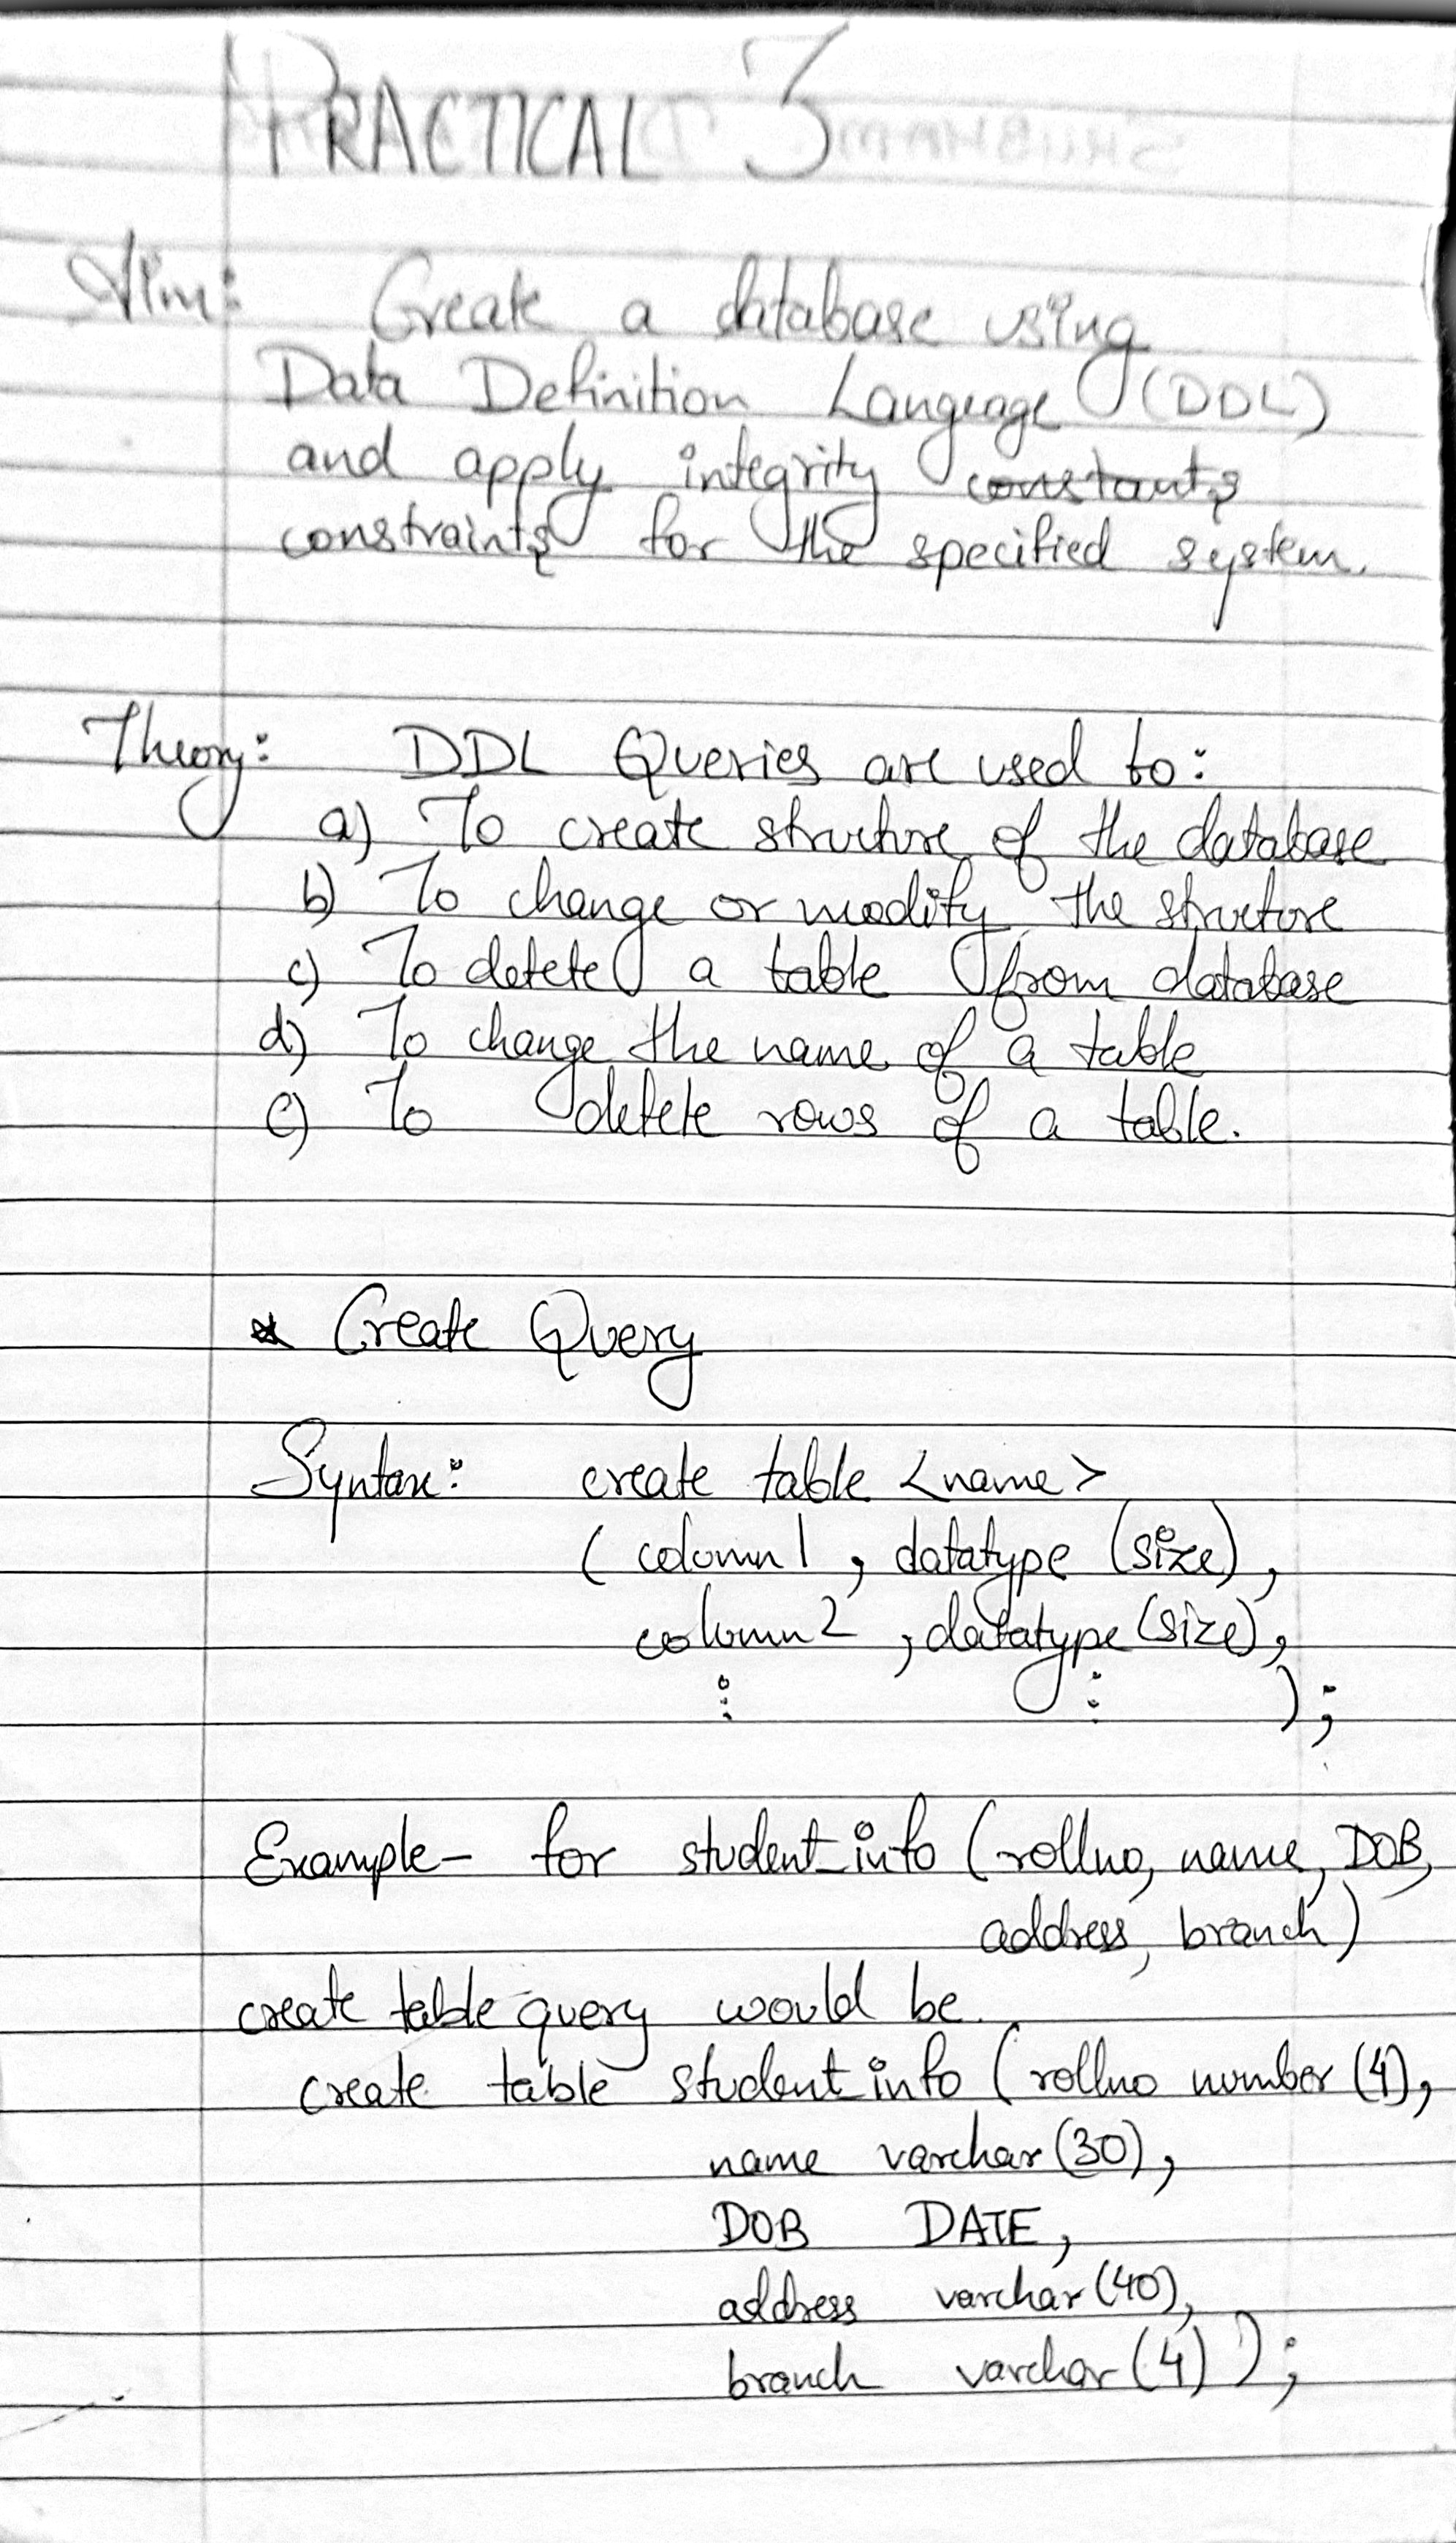 PRACTICAL 3
Aim: Create a database using
Data Definition Language (DDL)
and apply integrity constants
constraints for the specified system.
Theory: DDL Queries are used to:
a) To create structure of the database
b) To change or modify the structure
c) To detete a table from database
d) To change the name of a table
e) To detete rows of a table.
* Create Query
Syntax: create table <name>
( column1 , datatype (size),
column2 , datatype (size),
⋮ ⋮ );
Example- for student_info (rollno, name, DOB,
address, branch)
create table query would be.
create table student_info (rollno number (4),
name varchar (30),
DOB DATE,
address varchar (40),
branch varchar (4) );